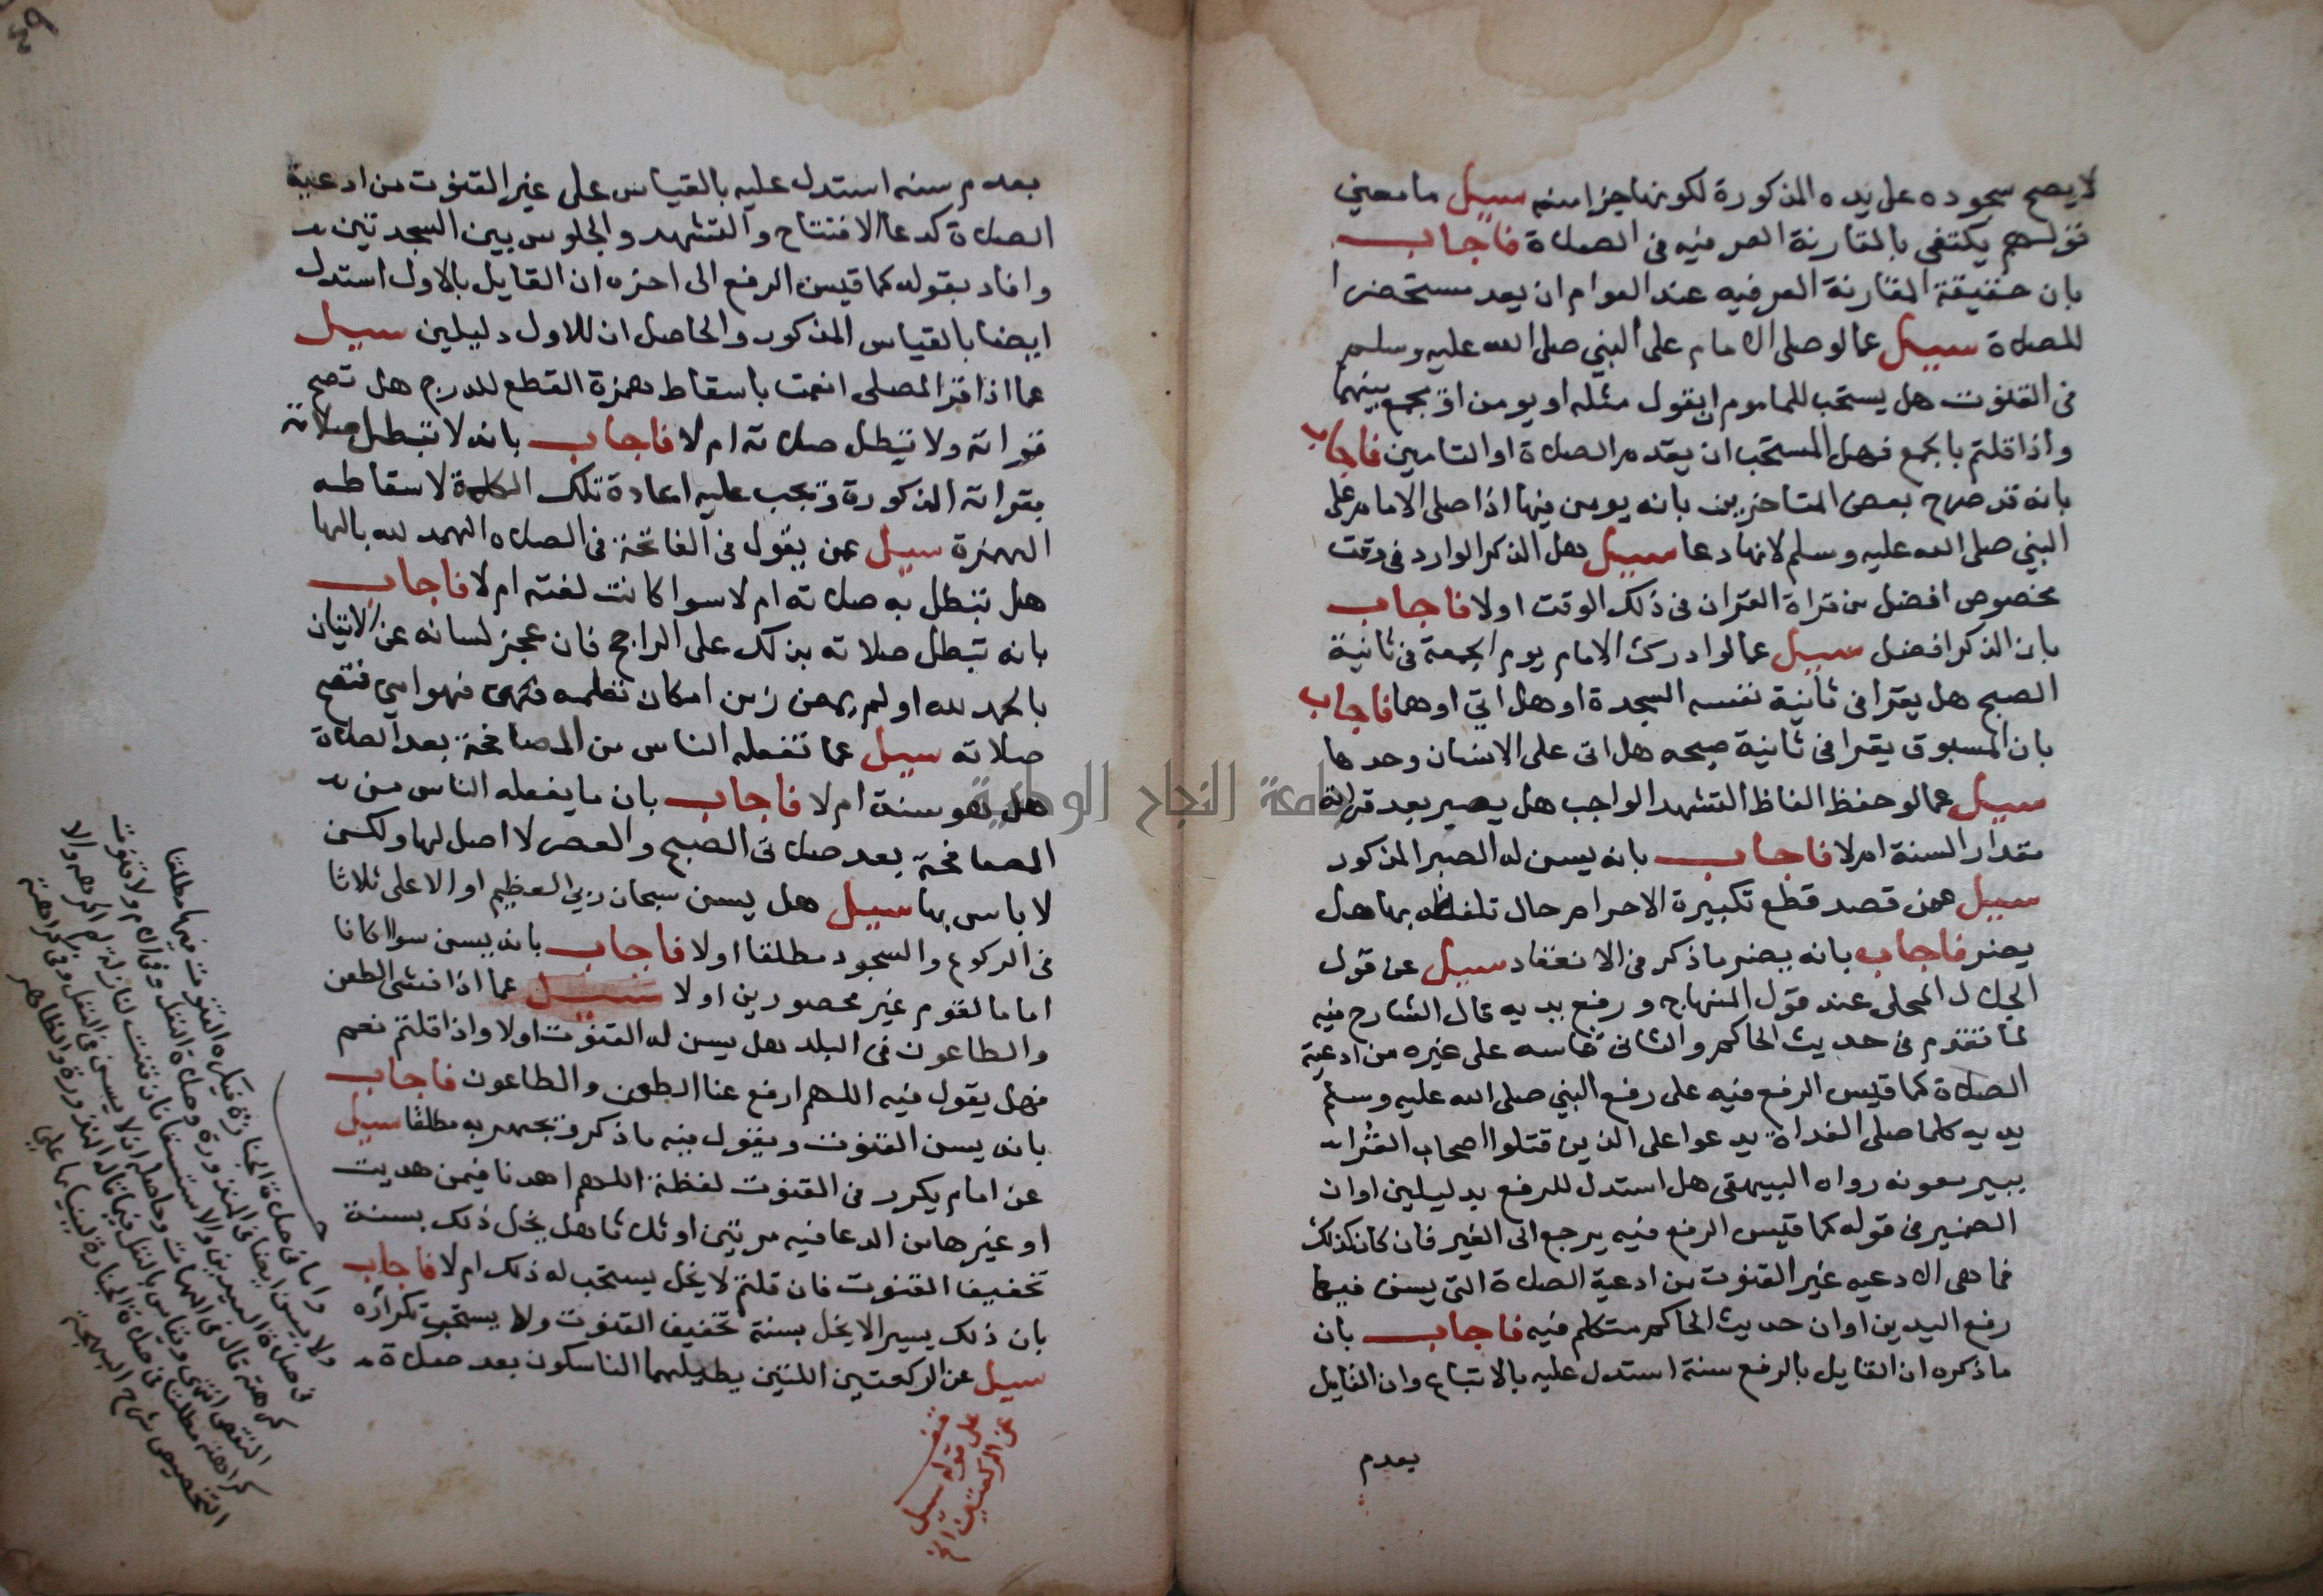 لا يصح سجوده على يده المذكورة لكونها جزا منه سيل ما معني
قولهم يكتفى بالمقارنة العرفيه فى الصلاة فاجاب
بان حقيقة المقارنة العرفيه عند العوام ان يعد مستحضرا
للصلاة سيل عما لو صلى الامام على النبي صلى الله عليه وسلم
فى القنوت هل يستحب للماموم ان يقول مثله او يومن او يجمع بينهما
واذا قلتم بالجمع فهل المستحب ان يقدم الصلاة او التامين فاجاب
بانه قد صرح بعض المتاخرين بانه يومن فيها اذا صلى الامام على
النبي صلى الله عليه وسلم لانها دعا سيل هل الذكر الوارد فى وقت
مخصوص افضل من قراة القران فى ذلك الوقت اولا فاجاب
بان الذكر افضل سيل عما لو ادرك الامام يوم الجمعة فى ثانية
الصبح هل يقرا فى ثانية نفسه السجدة او هل اتي او هما فاجاب
بان المسبوق يقرا فى ثانية صبحه هل اتى على الانسان وحدها
سيل عما لو حفظ الفاظ التشهد الواجب هل يصير بعد قراته
مقدار السنة ام لا فاجاب بانه يسن له الصبر المذكور
سيل عمن قصد قطع تكبيرة الاحرام حال تلفظه بها هل
يضر فاجاب بانه يضر ما ذكر فى الانعقاد سيل عن قول
الجلال المحلى عند قول المنهاج ورفع يديه قال الشارح فيه
لما تقدم فى حديث الحاكم والثانى قاسه على غيره من ادعية
الصلاة كما قيس الرفع فيه على رفع النبي صلى الله عليه وسلم
يديه كلما صلى الغداة يدعوا على الذين قتلوا اصحاب القراء
ببير معونه رواه البيهقى هل استدل للرفع بدليلين او ان
الضمير فى قوله كما قيس الرفع فيه يرجع الى الغير فان كان كذلك
فما هى الادعيه غير القنوت من ادعية الصلاة التى يسن فيها
رفع اليدين او ان حديث الحاكم متكلم فيه فاجاب بان
ما ذكره ان القايل بالرفع سنة استدل عليه بالاتباع وان القايل
بعدم
بعدم سنه استدل عليه بالقياس على غير القنوت من ادعية
الصلاة كدعا الافتتاح والتشهد والجلوس بين السجدتين
وافاد بقوله كما قيس الرفع الى اخره ان القايل بالاول استدل
ايضا بالقياس المذكور والحاصل ان للاول دليلين سيل
عما اذا قرا المصلى انعمت باسقاط همزة القطع للدرج هل تصح
قراته ولا تبطل صلاته ام لا فاجاب بانه لا تبطل صلاته
بقراته المذكورة وتجب عليه اعادة تلك الكلمة لاسقاطه
الهمزة سيل عمن يقول فى الفاتحة فى الصلاه الهمد لله بالها
هل تبطل به صلاته ام لا سوا كانت لغته ام لا فاجاب
بانه تبطل صلاته بذلك على الراجح فان عجز لسانه عن الاتيان
بالحمد لله او لم يمض زمن امكان تعلمه فهو امي فتصح
صلاته سيل عما تفعله الناس من المصافحة بعد الصلاة
هل هو سنة ام لا فاجاب بان ما يفعله الناس من
المصافحة بعد صلاتى الصبح والعصر لا اصل لها ولكن
لا باس بها سيل هل يسن سبحان ربي العظيم او الاعلى ثلاثا
فى الركوع والسجود مطلقا اولا فاجاب بانه يسن سوا كانا
اماما لقوم غير محصورين اولا سيل عما اذا فشى الطعن
والطاعون فى البلد هل يسن له القنوت اولا واذا قلتم نعم
فهل يقول فيه اللهم ارفع عنا الطعن والطاعون فاجاب
بانه يسن القنوت ويقول فيه ما ذكر وتجهر به مطلقا سيل
عن امام يكرر فى القنوت لفظة اللهم اهدنا فيمن هديت
او غيرها من الدعا فيه مرتين او ثلاثا هل يخل ذلك بسنة
تخفيف القنوت فان قلتم لا يخل يستحب له ذلك ام لا فاجاب
بان ذلك يسير لا يخل بسنة تخفيف القنوت ولا يستحب تكراره
سيل عن الركعتين اللتين يطيلهما الناسكون بعد صلاة
على قوله سيل
عن الركعتين الخ
واما فى صلاة الجنازة فيكره القنوت فيها مطلقا
ولا يسن ايضا فى المنذورة وصلاة النفل
جامعة النجاح الوطنية